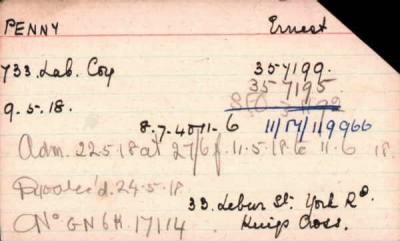 PENNY Ernest
733. Lab. Coy 357199.
357195.
9.5.18.
8.7.40/11-6 11/17/119966
Adm. 22.5.18 at 27/6 f. 11.5.18 to 11.6 18.
24.5.18
33. Lebur St. York Rd.
No GN6H.17114 Kings Cross.